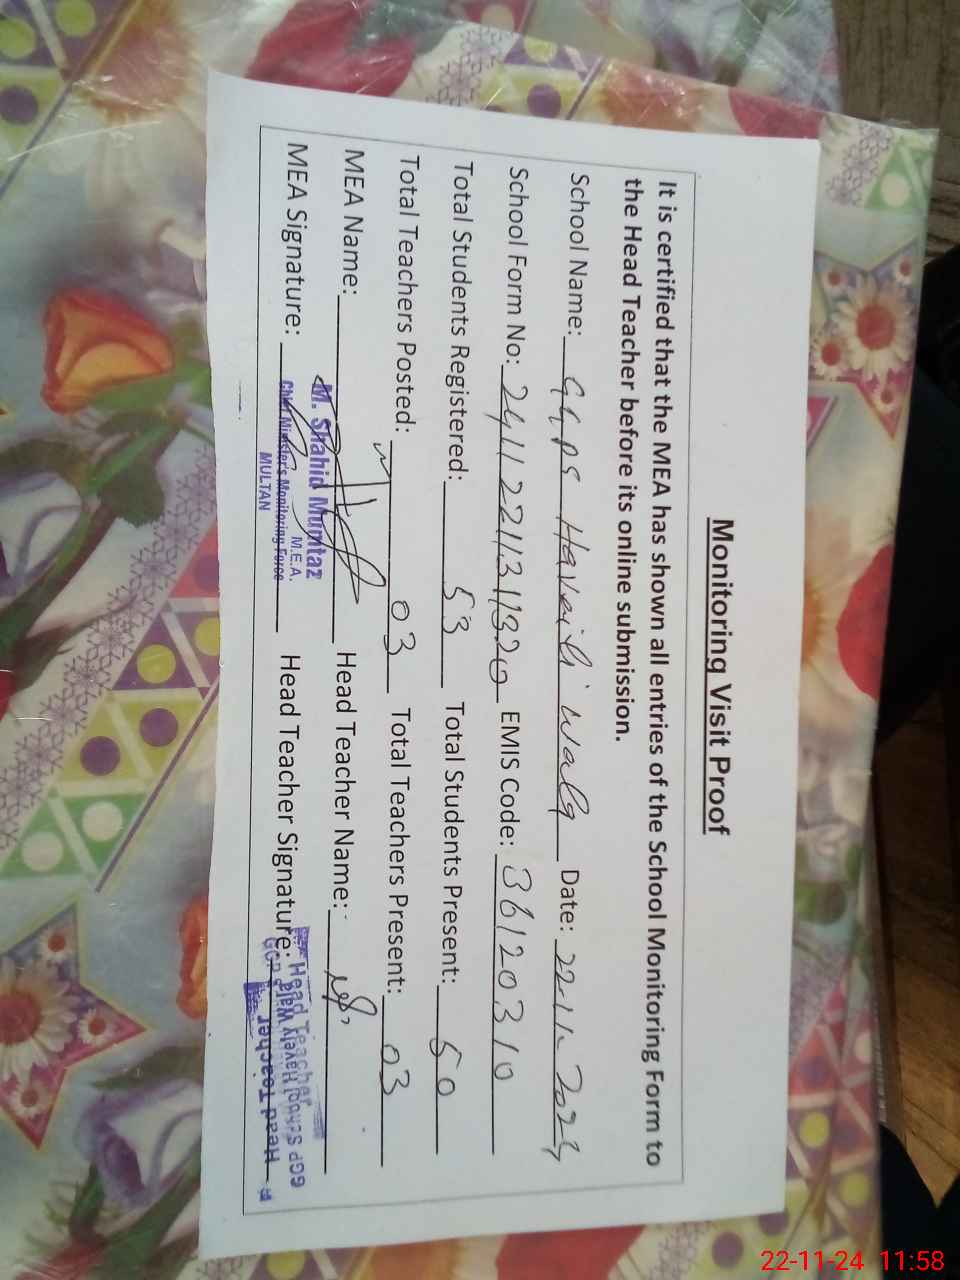 Monitoring Visit Proof
It is certified that the MEA has shown all entries of the School Monitoring Form to
the Head Teacher before its online submission.
School Name: GGPS Haveili wala Date: 22-11-2024
School Form No: EMIS Code: 36120310
Total Students Registered: 53 Total Students Present: 50
Total Teachers Posted: 03 Total Teachers Present: 03
MEA Name: Head Teacher Name:
M. Shahid Mumtaz
M.E.A.
MEA Signature: Head Teacher Signature:
Chief Minister's Monitoring Force
MULTAN
Head Teacher
Head Teacher
22-11-24 11:58